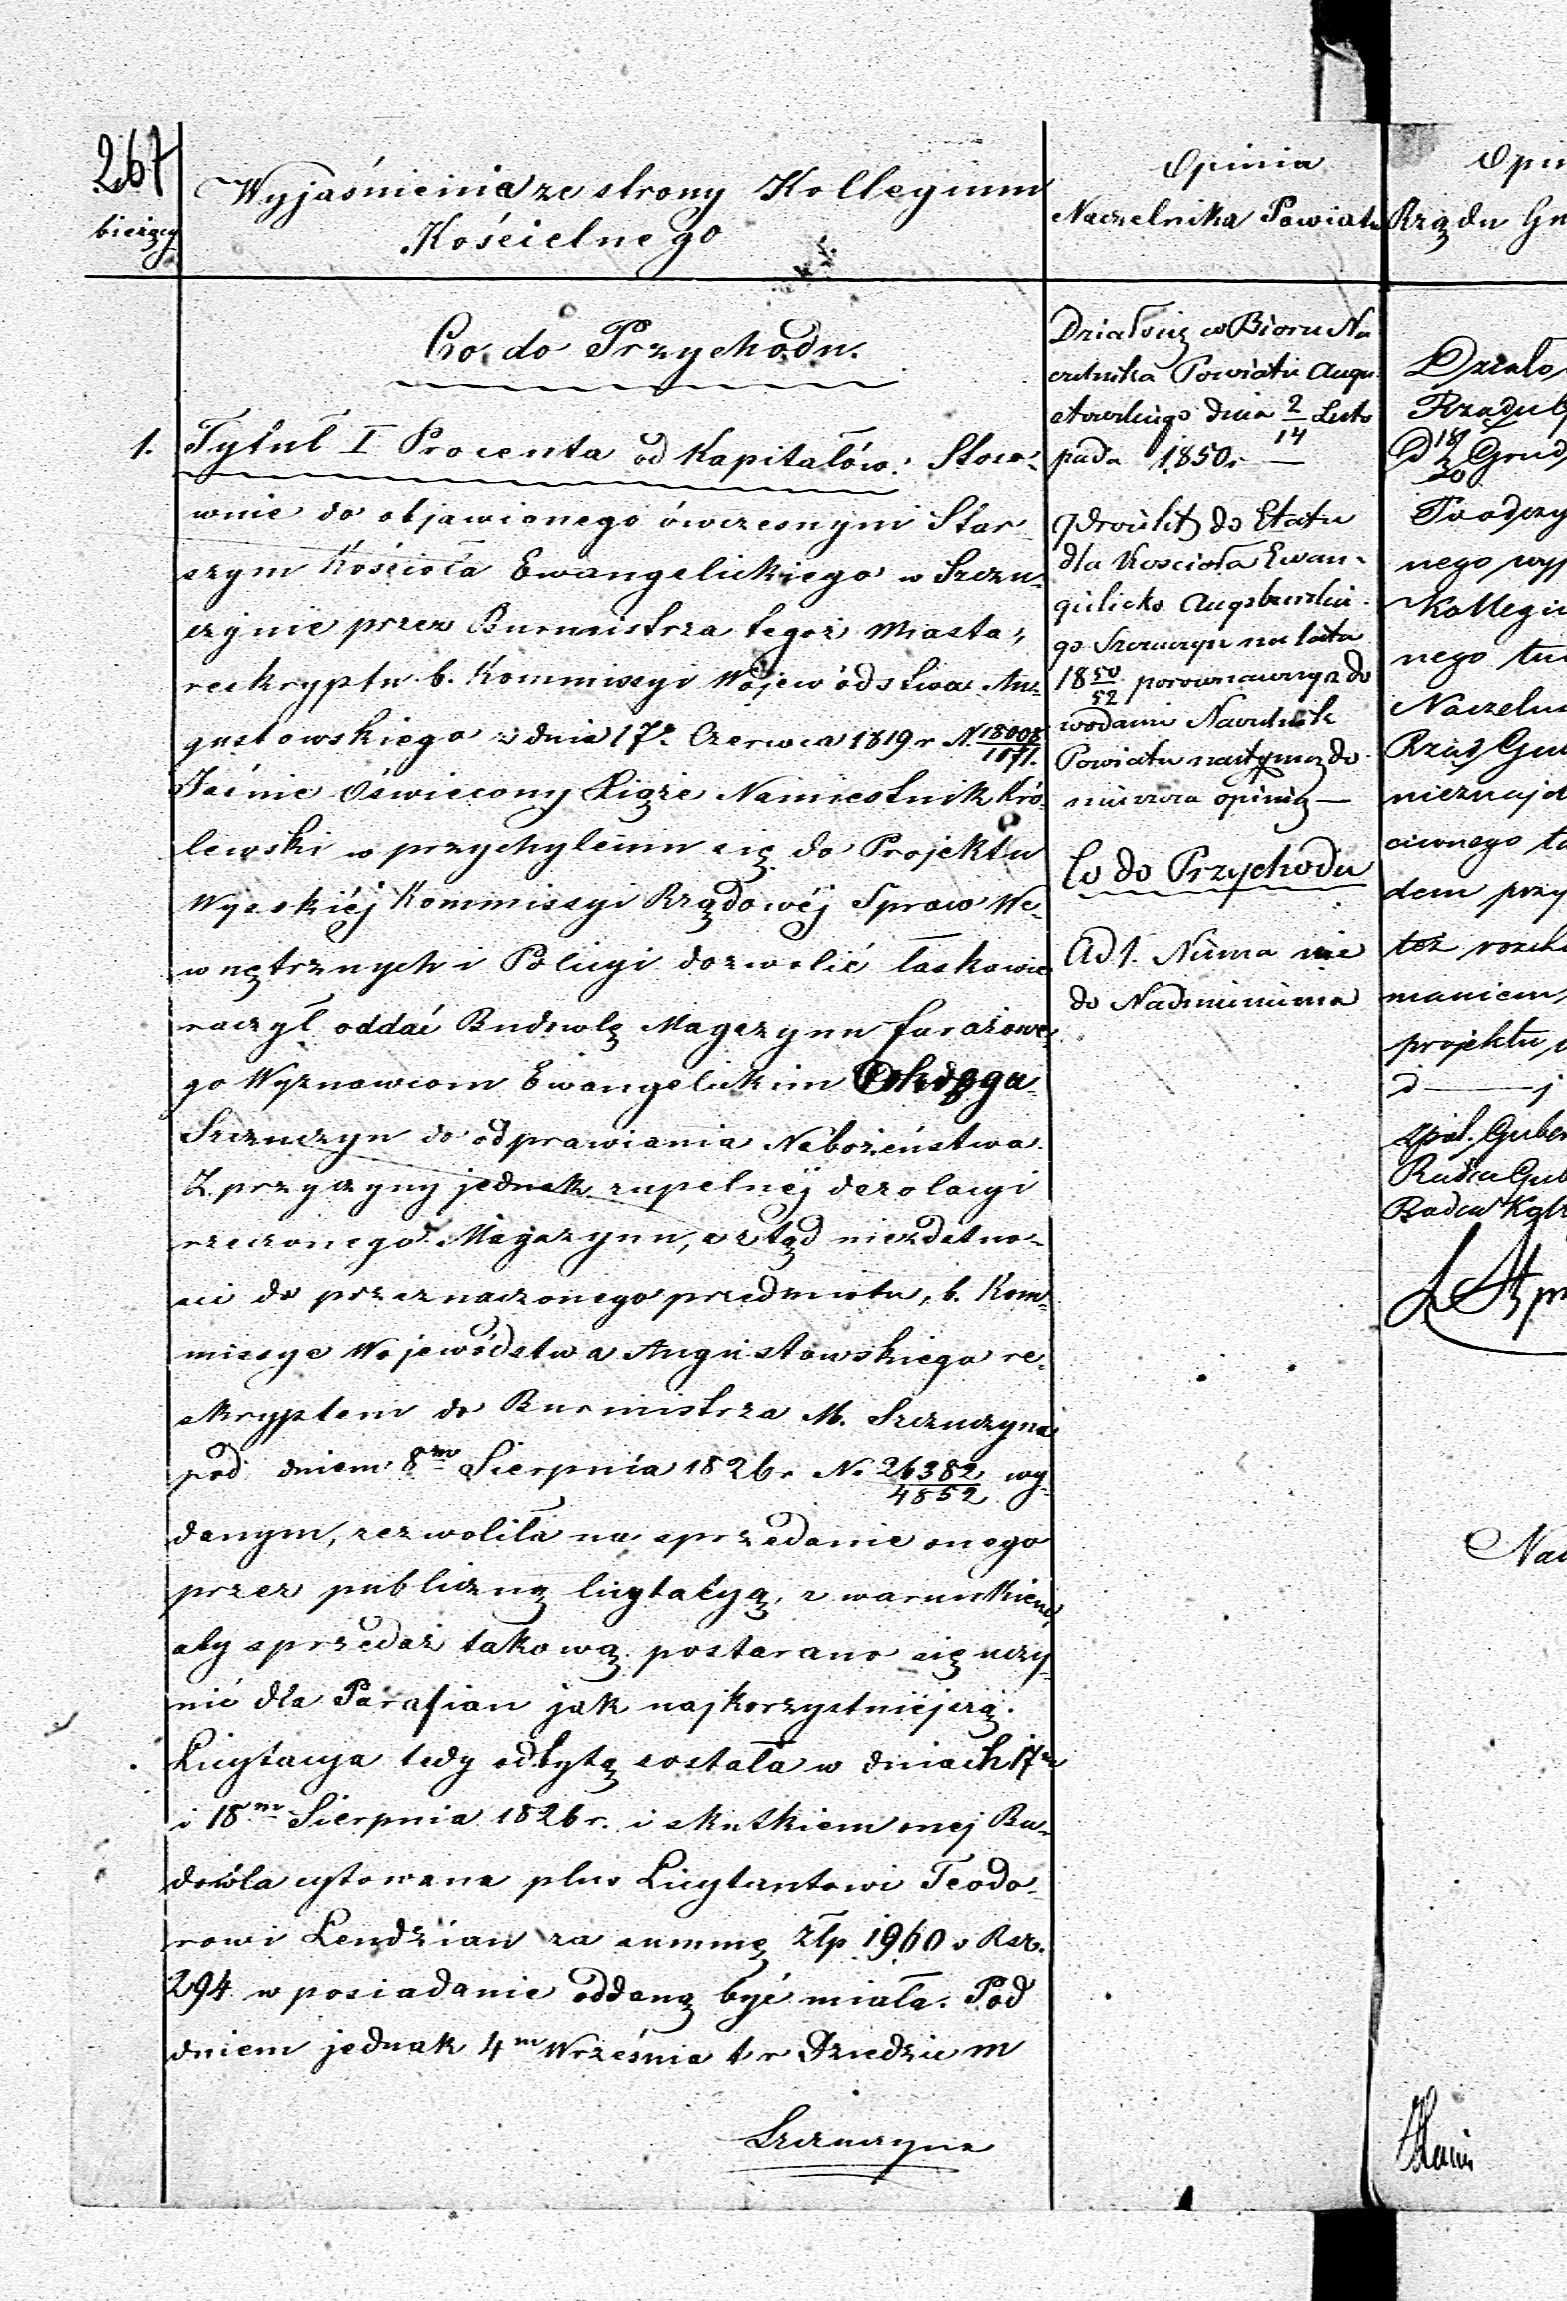 267
bieżący
Wyjaśnienia ze strony Kollegium
Kościelnego
Co do Przychodu.
1. Tytuł I Procenta od Kapitałów. Stoso-
wnie do objawionego ówczesnym Star-
szym Kościoła Ewangelickiego w Szczu-
czynie przez Burmistrza tegoż Miasta,
reskryptu b. Kommissyi Województwa Au-
gustowskiego z dnia 17º Czerwca 1819 r N.
Jaśnie Oświecony Xiąże Namiestnik Kró-
lewski w przychyleniu się do Projektu
Wysokiéj Kommissyi Rządowéj Spraw We-
wnętrznych i Policyi dozwolić łaskawie
raczył oddać Budowlę Magazynu furażowe-
go Wyznawcom Ewangelickim Okręgu
Szczuczyn do odprawiania Nabożeństwa.
Z przyczyny jednak zupełnéj dezolacyi
rzeczonego Magazynu, a ztąd niezdatno-
ści do przeznaczonego przedmiotu, b. Kom-
missya Województwa Augustowskiego re-
skryptem do Burmistrza M. Szczuczyna
pod dniem 8m Sierpnia 1826 r No 26382/4852 wy-
danym, zezwoliła na sprzedanie onego
przez publiczną licytacyą, z warunkiem,
aby sprzedaż takową postarano się uczy-
nić dla Parafian jak najkorzystniejszą.
Licytacya tedy odbytą została w dniach 17m
i 18m Sierpnia 1826 r. i skutkiem onej Bu-
dowla cytowana plus Licytantowi Teodo-
rowi Lendzian za summę złp 1960 v Rsr.
294 w posiadanie oddaną być miała. Pod
dniem jednak 4m Września t r Dziedzic m
Szczuczyna
Opinia
Naczelnika Powiatu
Działo się w Biorze Na
czelnika Powiatu Augu
stowskiego dnia 2/14 Listo
pada 1850 r —
do Etatu
dla Kościoła Ewan-
gielicko Augsburskie
go Szczuczyn na lata
18 50/52 porównawszy z do
wodami Naczelnik
Powiatu następną do
mieszcza opinię —
Co do Przychodu
Ad 1. Niema nic
do Nadmienienia
Opin
Rządu Gu
Działo
Rządu G
d 18/30 Grud
nego wyj
Kollegiu
nego tu
Naczeln
Rząd Gub
nieznajd
ciwnego ta
dem przy
też rozch
maniem,
projektu
Radca Gub